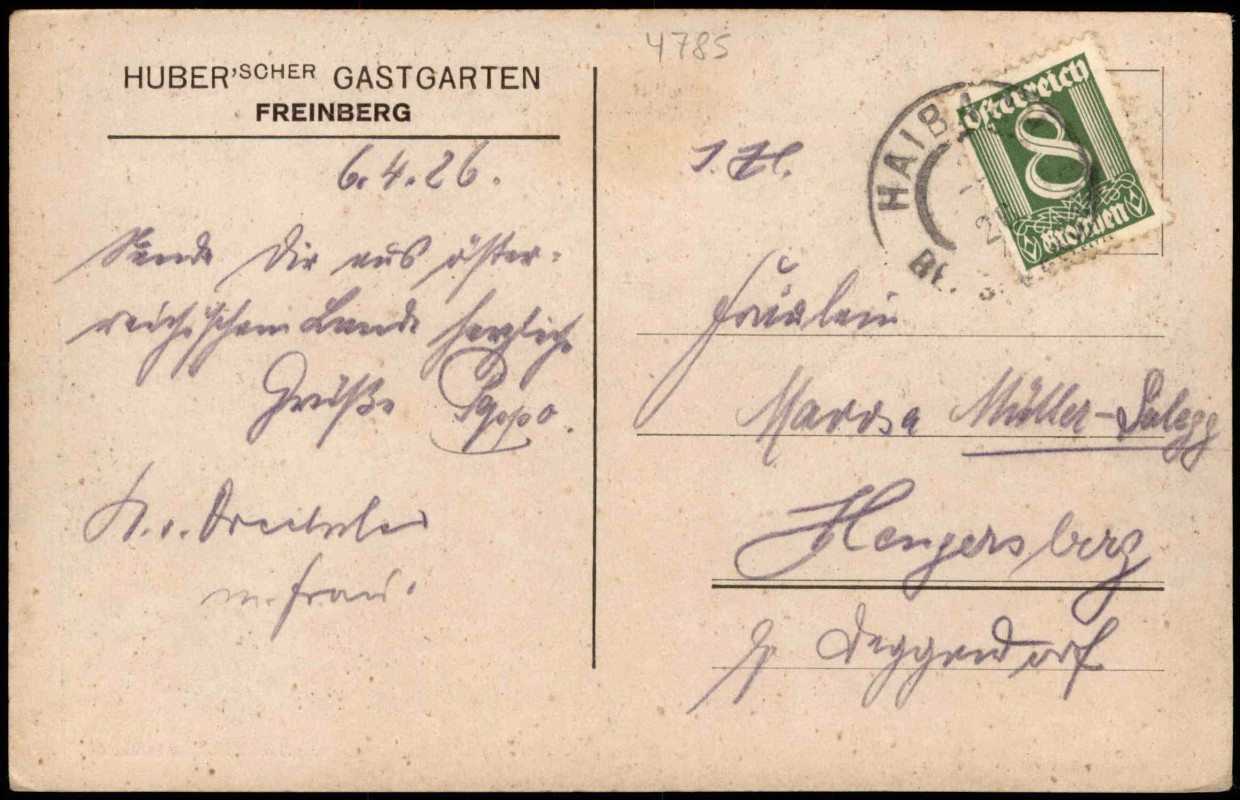 4785
HUBER'SCHER GASTGARTEN
FREINBERG
6.4.26.
Sende Dir aus öster-
reichischem Lande herzliche
Grüße
m. Frau.
HAIB
Österreich
8
Groschen
Fräulein
Müller-
Hengersberg
Deggendorf